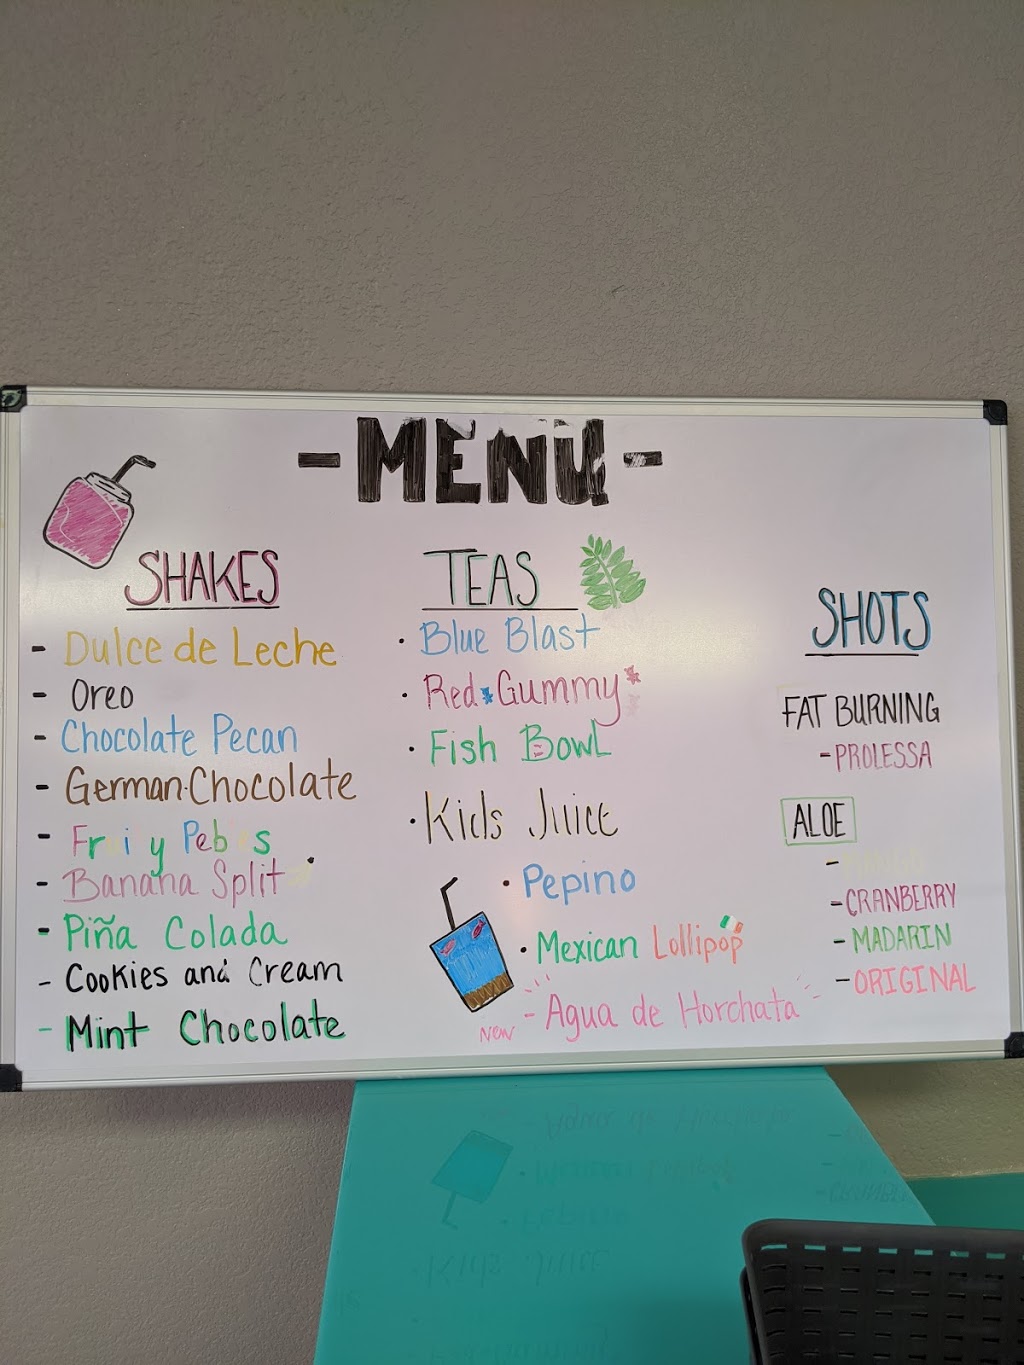 -MENU-
SHAKES
- Dulce de Leche
- Oreo
- Chocolate Pecan
- German·Chocolate
- Fr i y Peb s
- Banana Split
- Piña Colada
- Cookies and Cream
- Mint Chocolate
TEAS
· Blue Blast
· Red*Gummy*
· Fish Bowl
· Kids Juice
· Pepino
· Mexican Lollipop
NEW - Agua de Horchata
SHOTS
FAT BURNING
- PROLESSA
ALOE
- CRANBERRY
- MADARIN
- ORIGINAL